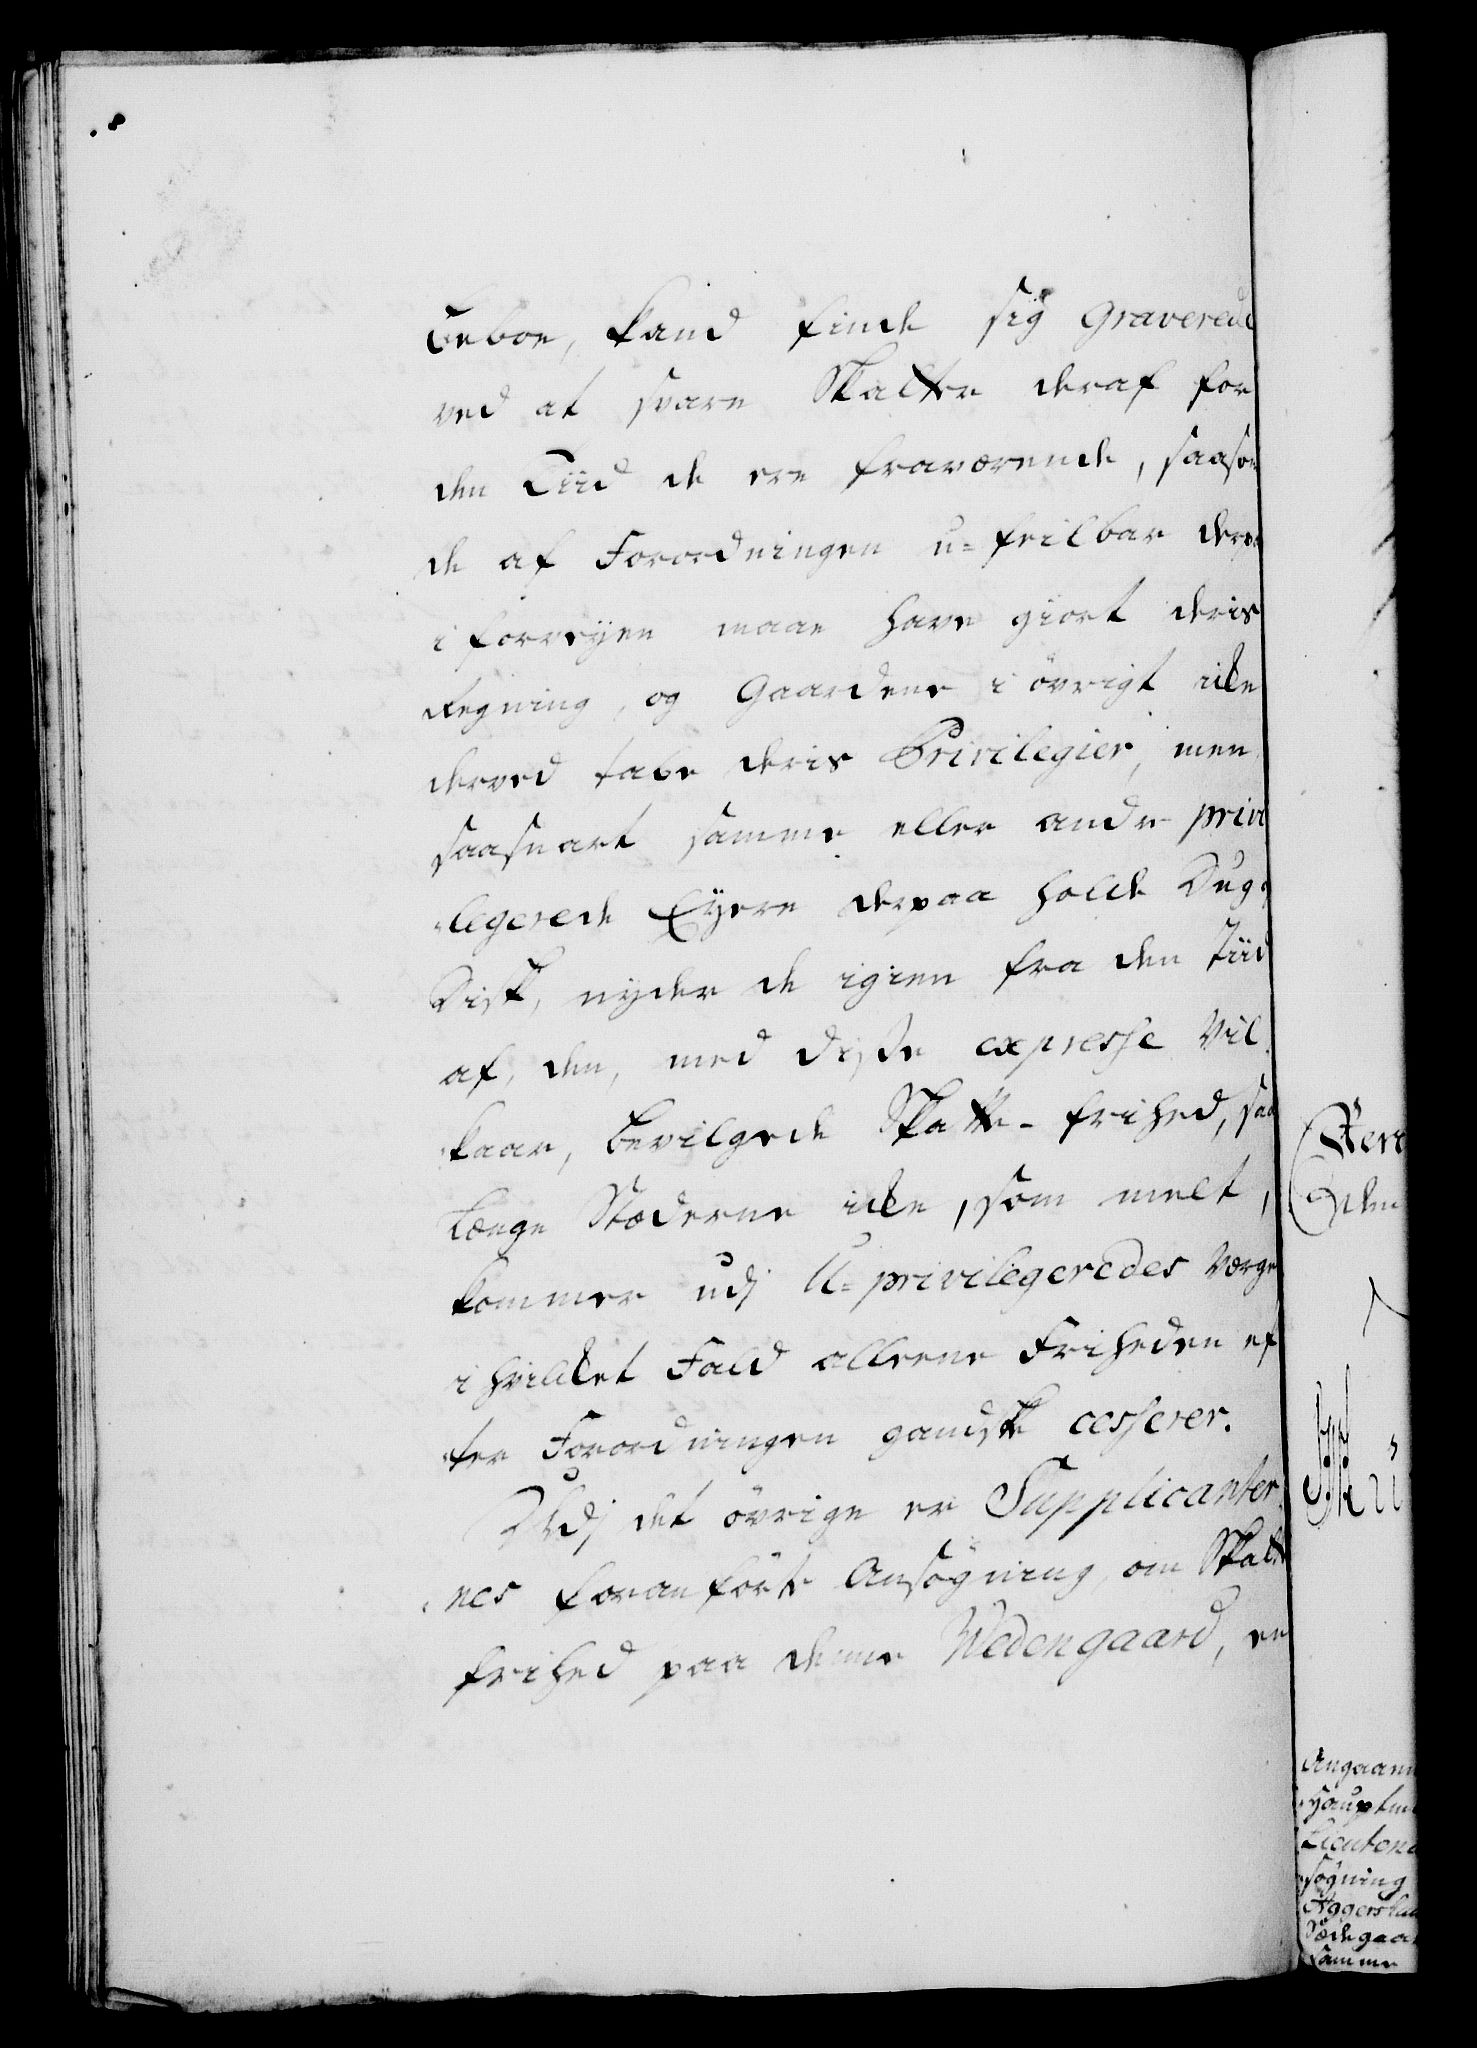 beboe, kand finde sig graverede
ved at svare Skatter deraf for
den Tiid de ere fraværende, saasom
de af Forordningen u-feilbar
i forveyen maae have giort deris
Regning, og Gaardene i övrigt icke
derved tabe deris Privilegier, men
saasnart samme eller andre privi
legerede Eyere derpaa holde Dug
Disk, nyder de igien fra den Tiid
af, den, med disse expresse Vil
kaar, bevilgede Skatte-frihed, saa
længe Stæderne icke, som melt,
kommer udj U-privilegeredes Værge
i hvilket Fald alleene Friheden ef
ter Forordningen gandske cesserer.
Udj det övrige er Supplicanter
nes foranförte Ansögning om Skatte
frihed paa denne Wedengaard, en
Angaaen
Hauptm
Lieutena
sögning
Aggershu
Sædegaar
samme